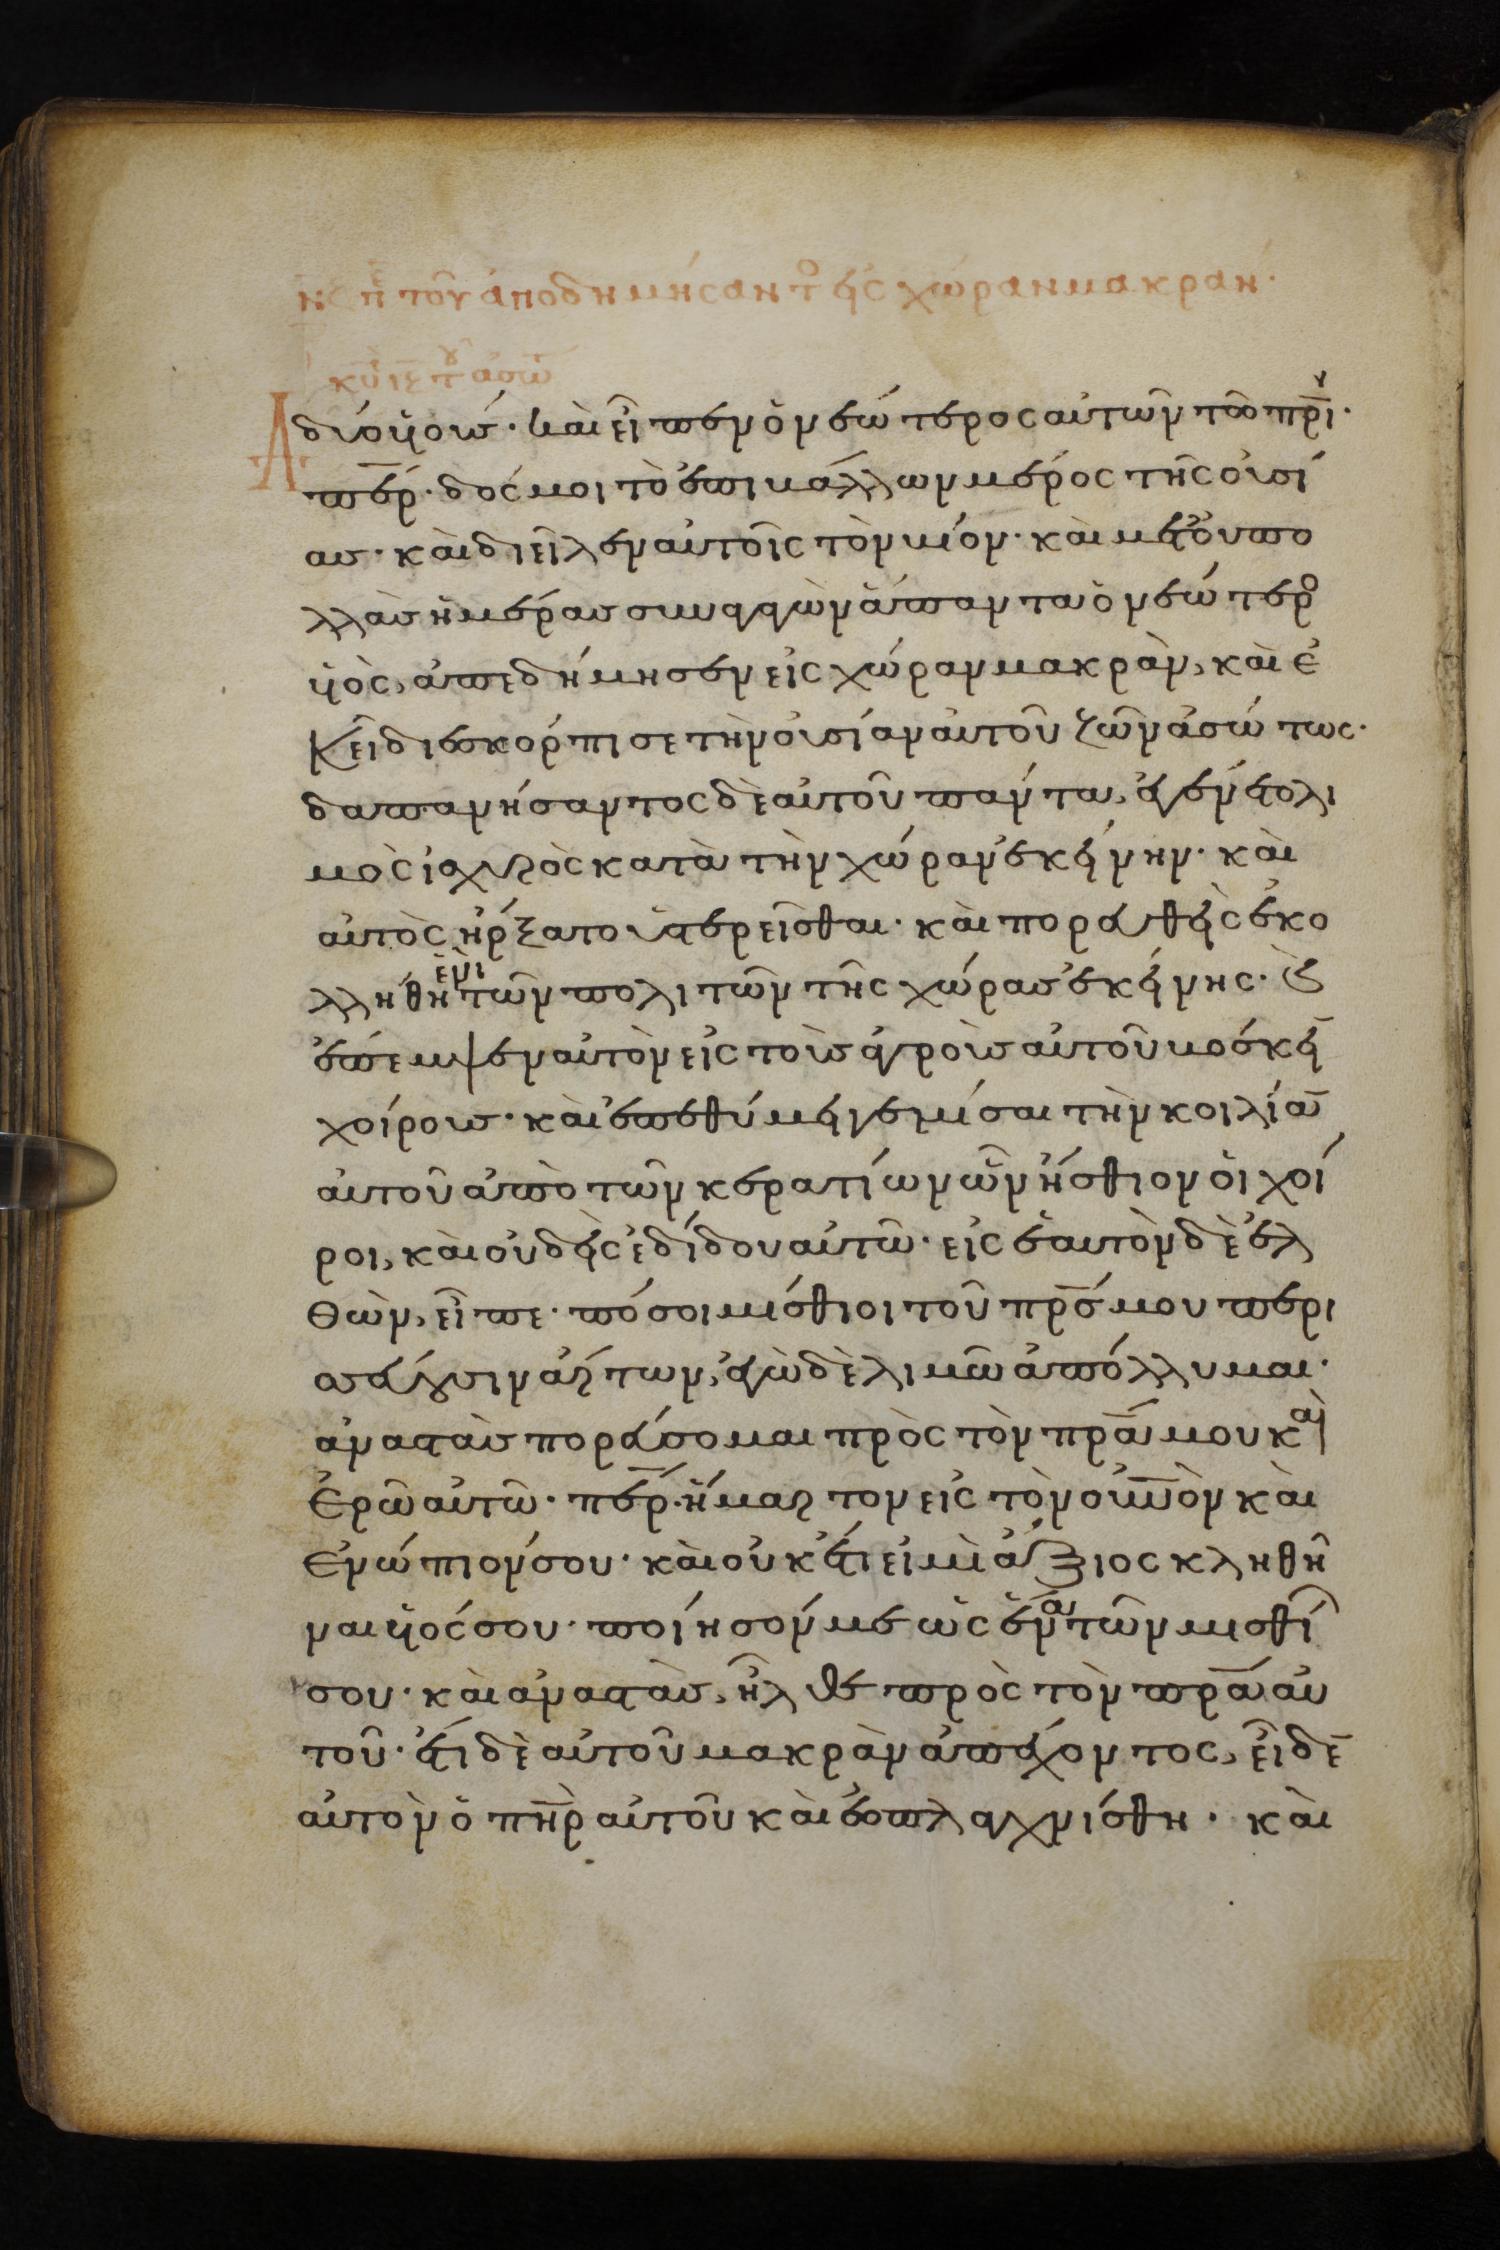 περὶ τοῦ ἀποδημήσαντο εἰς χώραν μακράν·
κυ τ ασω
δύο ὑϊούς· καὶ εἶπεν ὁ νεώτερος αὐτῶν τῶ πρι·
περ· δός μοι τὸ ἐπιβάλλων μέρος τῆς οὐσί
ας· καὶ διεῖλεν αὐτοῖς τὸν βίον· καὶ μετ οὐ πο
λλὰς ἡμέρας συναγαγὼν ἅπαντα ὁ νεώτερο
ὑϊὸς, ἀπεδήμησεν εἰς χώραν μακρὰν, καὶ ἐ
κεῖ διεσκόρπισε τὴν οὐσίαν αὐτοῦ ζῶν ἀσώτως·
δαπανήσαντος δὲ αὐτοῦ πάντα, ἐγένετο λι
μὸς ἰσχυρὸς κατὰ τὴν χώραν ἐκείνην· καὶ
αὐτὸς ἤρξατο ὑστερεῖσθαι· καὶ πορευθεὶς ἐκο
λλήθη ἑνὶ τῶν πολιτῶν τῆς χώρας ἐκείνης· καὶ
ἔπεμψεν αὐτὸν εἰς τοὺς ἀγροὺς αὐτοῦ βόσκειν
χοίρους· καὶ ἐπεθύμει γεμίσαι τὴν κοιλίαν
αὐτοῦ ἀπὸ τῶν κερατίων ὧν ἤσθιον οἱ χοί
ροι, καὶ οὐδεὶς ἐδίδου αὐτῶ· εἰς ἑαυτὸν δὲ ἐλ
θὼν, εἶπε· πόσοι μίσθιοι τοῦ πρς μου περι
σσεύουσιν ἄρτων, ἐγὼ δὲ λιμῶ ἀπόλλυμαι·
ἀναστὰς πορεύσομαι πρὸς τὸν πρα μου καὶ
ἐρῶ αὐτῶ· περ· ἥμαρτον εἰς τὸν οὐνον καὶ
ἐνώπιόν σου· καὶ οὐκ έτι εἰμὶ ἄξιος κληθῆ
ναι ὑϊός σου· ποίησόν με ὡς ἕνα τῶν μισθί
σου· καὶ ἀναστὰς, ἦλθε πρὸς τὸν πρα αὐ
τοῦ· έτι δὲ αὐτοῦ μακρὰν ἀπέχοντος, εἶδεν
αὐτὸν ὁ πηρ αὐτοῦ καὶ ἐσπλαγχνίσθη· καὶ